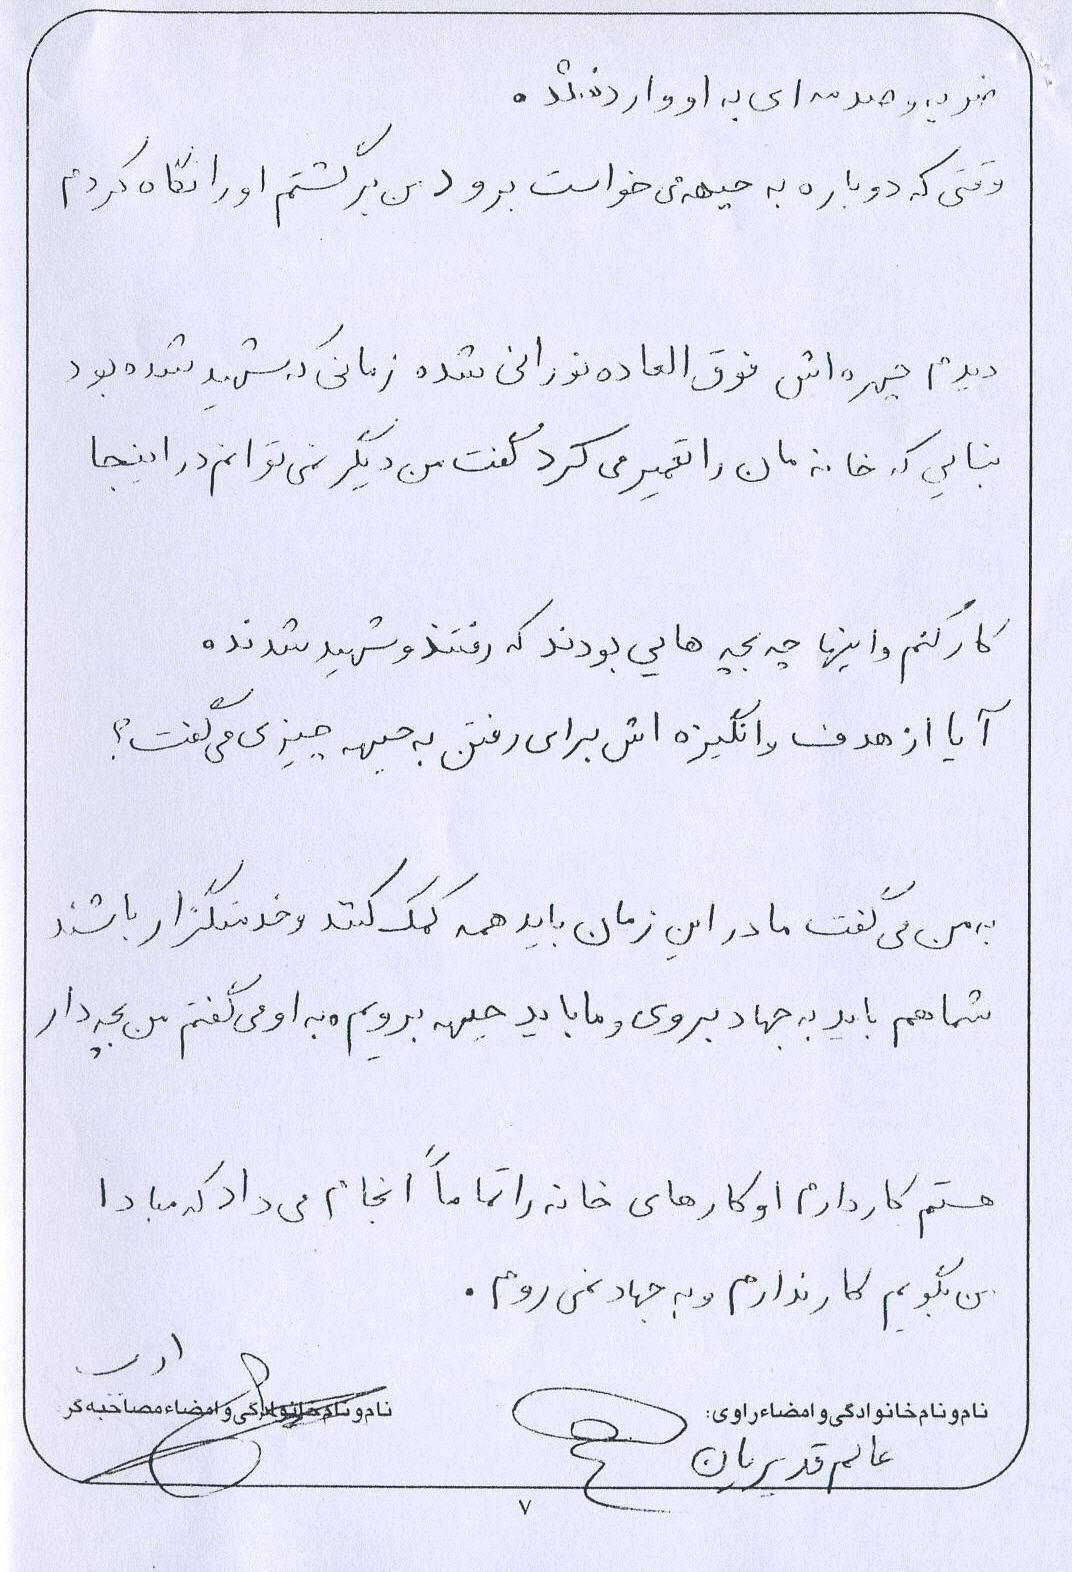 ضربه و صدمه ای به او وارد نشده
وقتی که دوباره به جبهه می خواست برود من برگشتم او را نگاه کردم
دیدم چهره اش فوق العاده نورانی شده زمانی که شهید شده بود
بنایی که خانه مان را تعمیر می کرد گفت من دیگر نمی توانم در اینجا
کار کنم و اینها چه بچه هایی بودند که رفتند و شهید شدند
آیا از هدف و انگیزه اش برای رفتن به جبهه چیزی می گفت؟
به من می گفت ما در این زمان باید همه کمک کنند و خدمتگزار باشند
شما هم باید به جهاد بروی و ما باید جبهه برویم به او می گفتم من بچه دار
هستم کار دارم او کارهای خانه را تماماً انجام می داد که مبادا
من بگویم کار ندارم و به جهاد نمی روم .
نام و نام خانوادگی و امضاء راوی:
نام و نام خانوادگی و امضاء مصاحبه گر
عالم قدیریان
۷